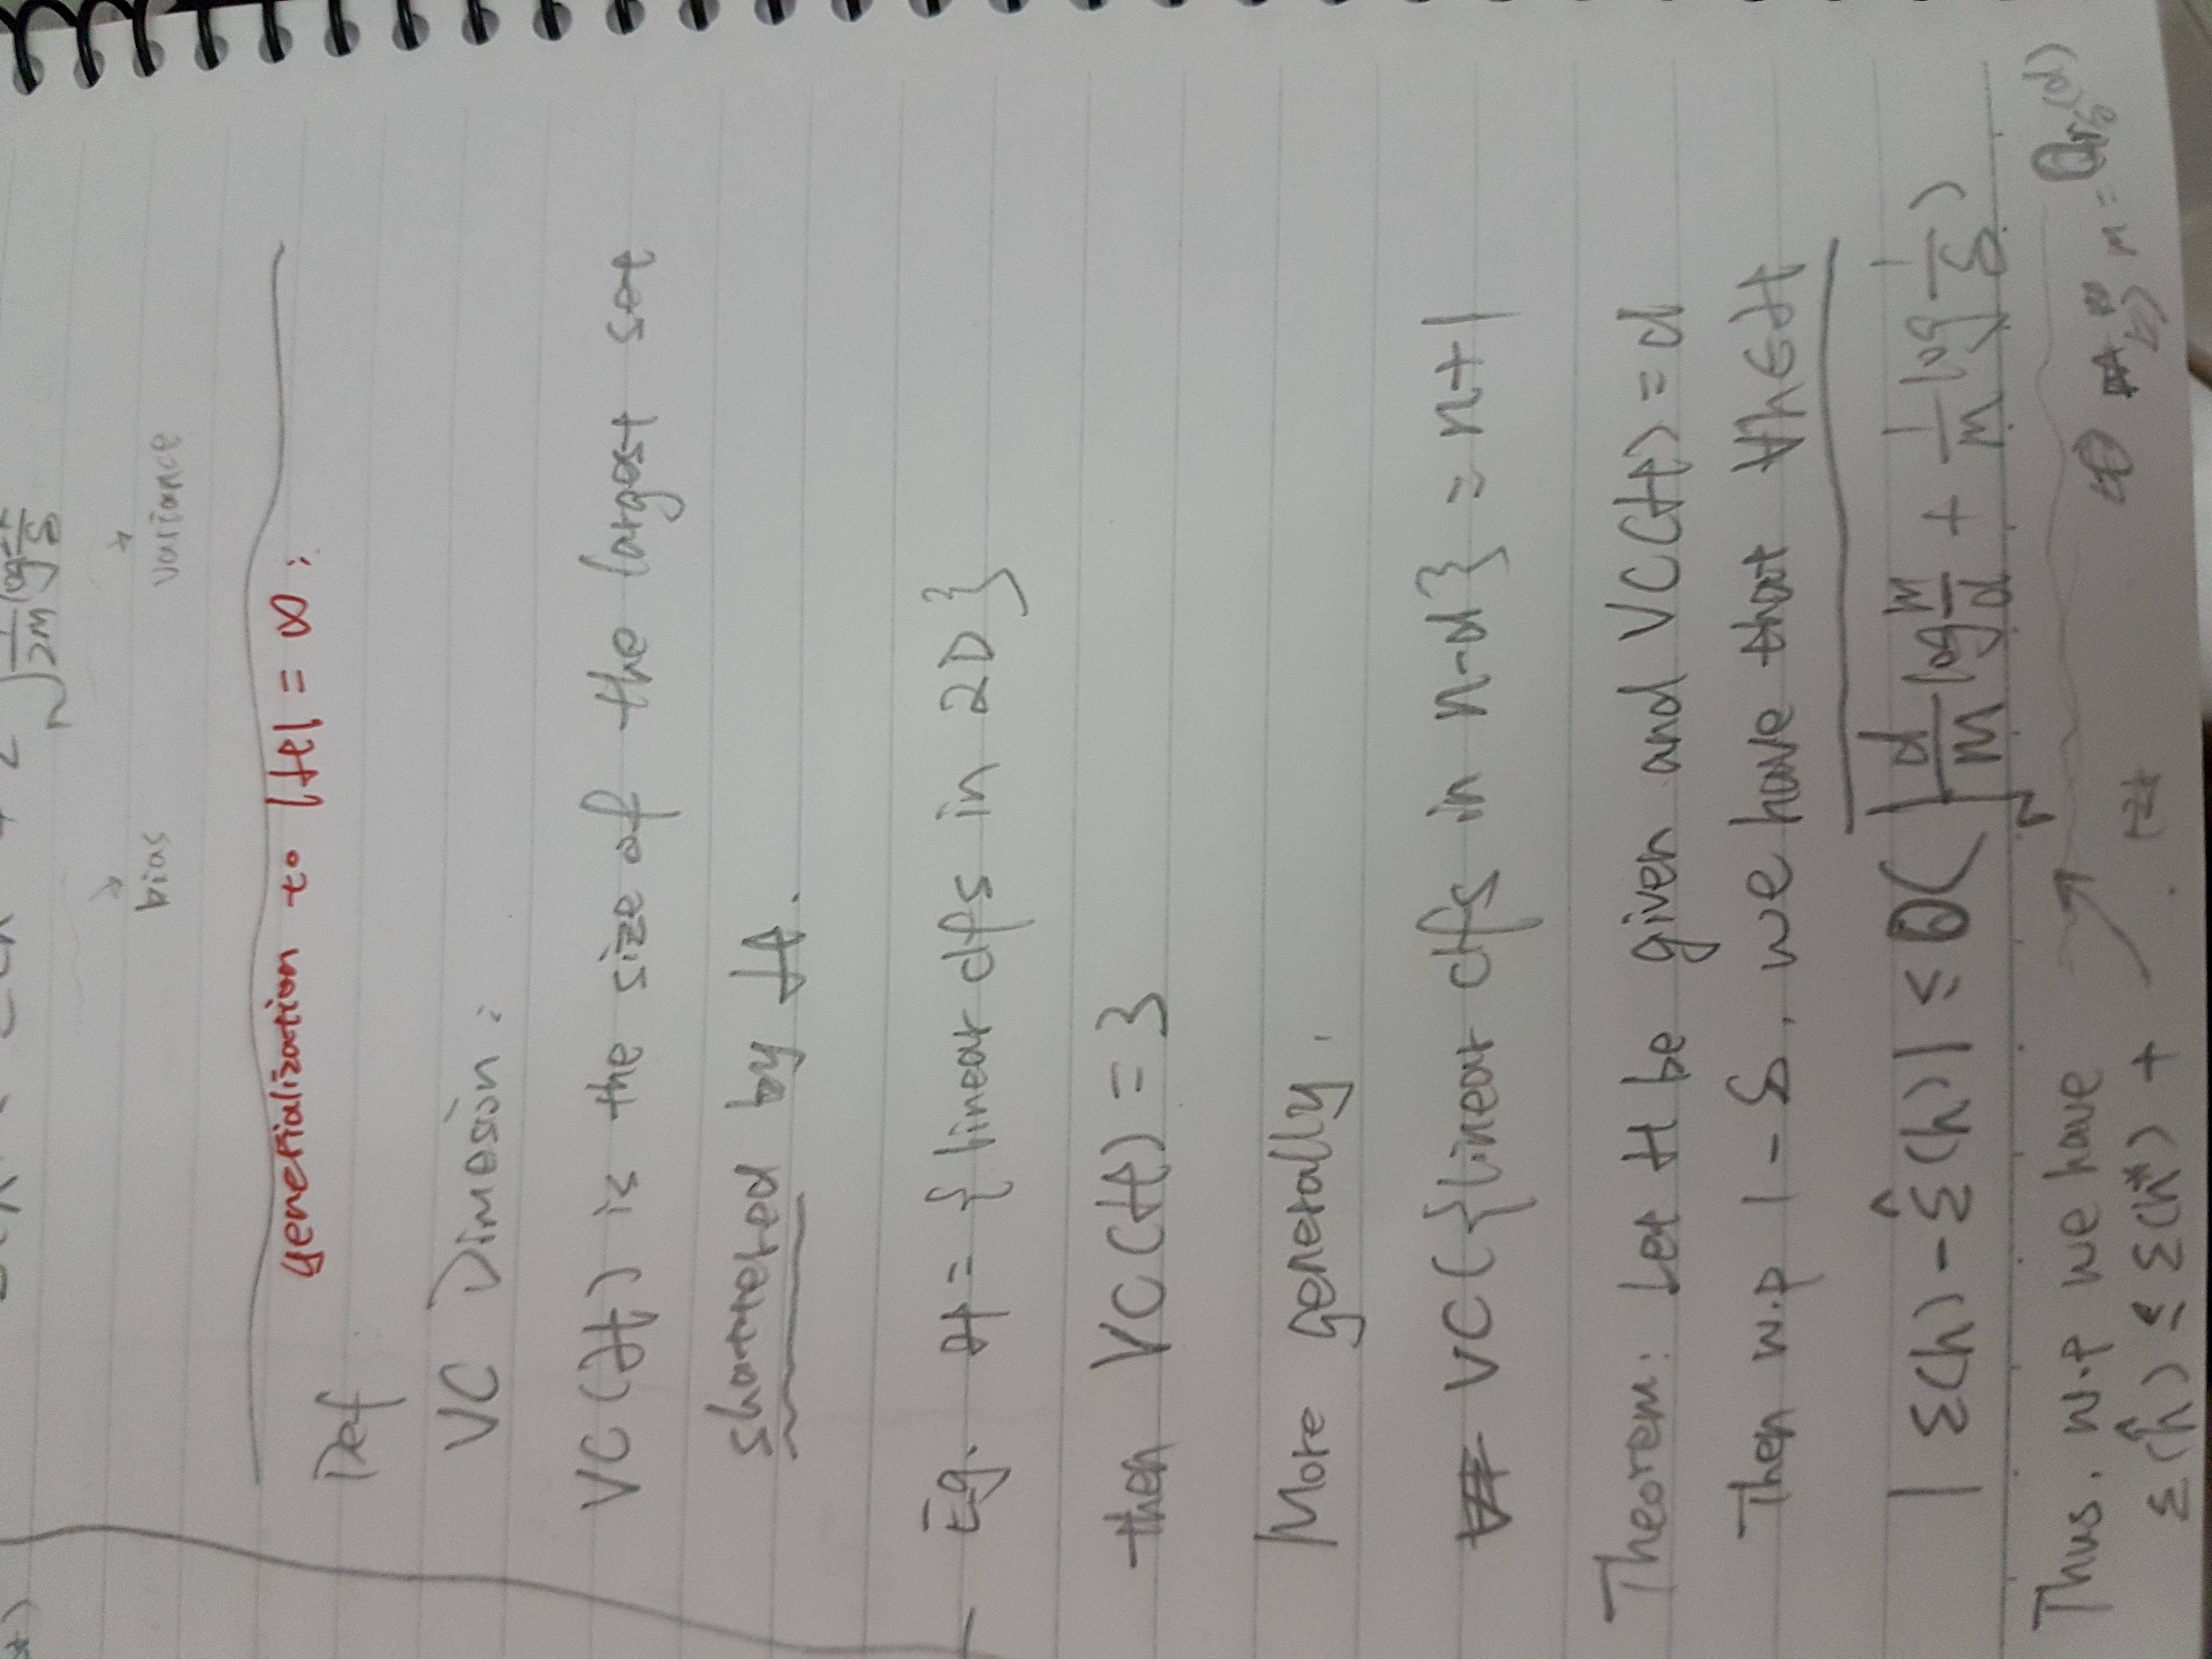 2 √ 1/2m log 2k/δ
bias variance
generialization to |H| = ∞ :
Def
VC Dimesion :
VC(H) is the size of the largest set
shattered by H.
Eg. H = { linear clfs in 2D }
then VC(H) = 3
More generally,
VC({linear clfs in n-d}) = n+1
Theorem: Let H be given and VC(H) = d
Then w.p 1 - δ, we have that ∀h∈H
| ε(h) - ε̂(h) | ≤ O( √ d/m log m/d + 1/m log 1/δ )
Thus, w.p we have
m = O_{r,δ}(d)
ε(ĥ) ≤ ε(h*) +